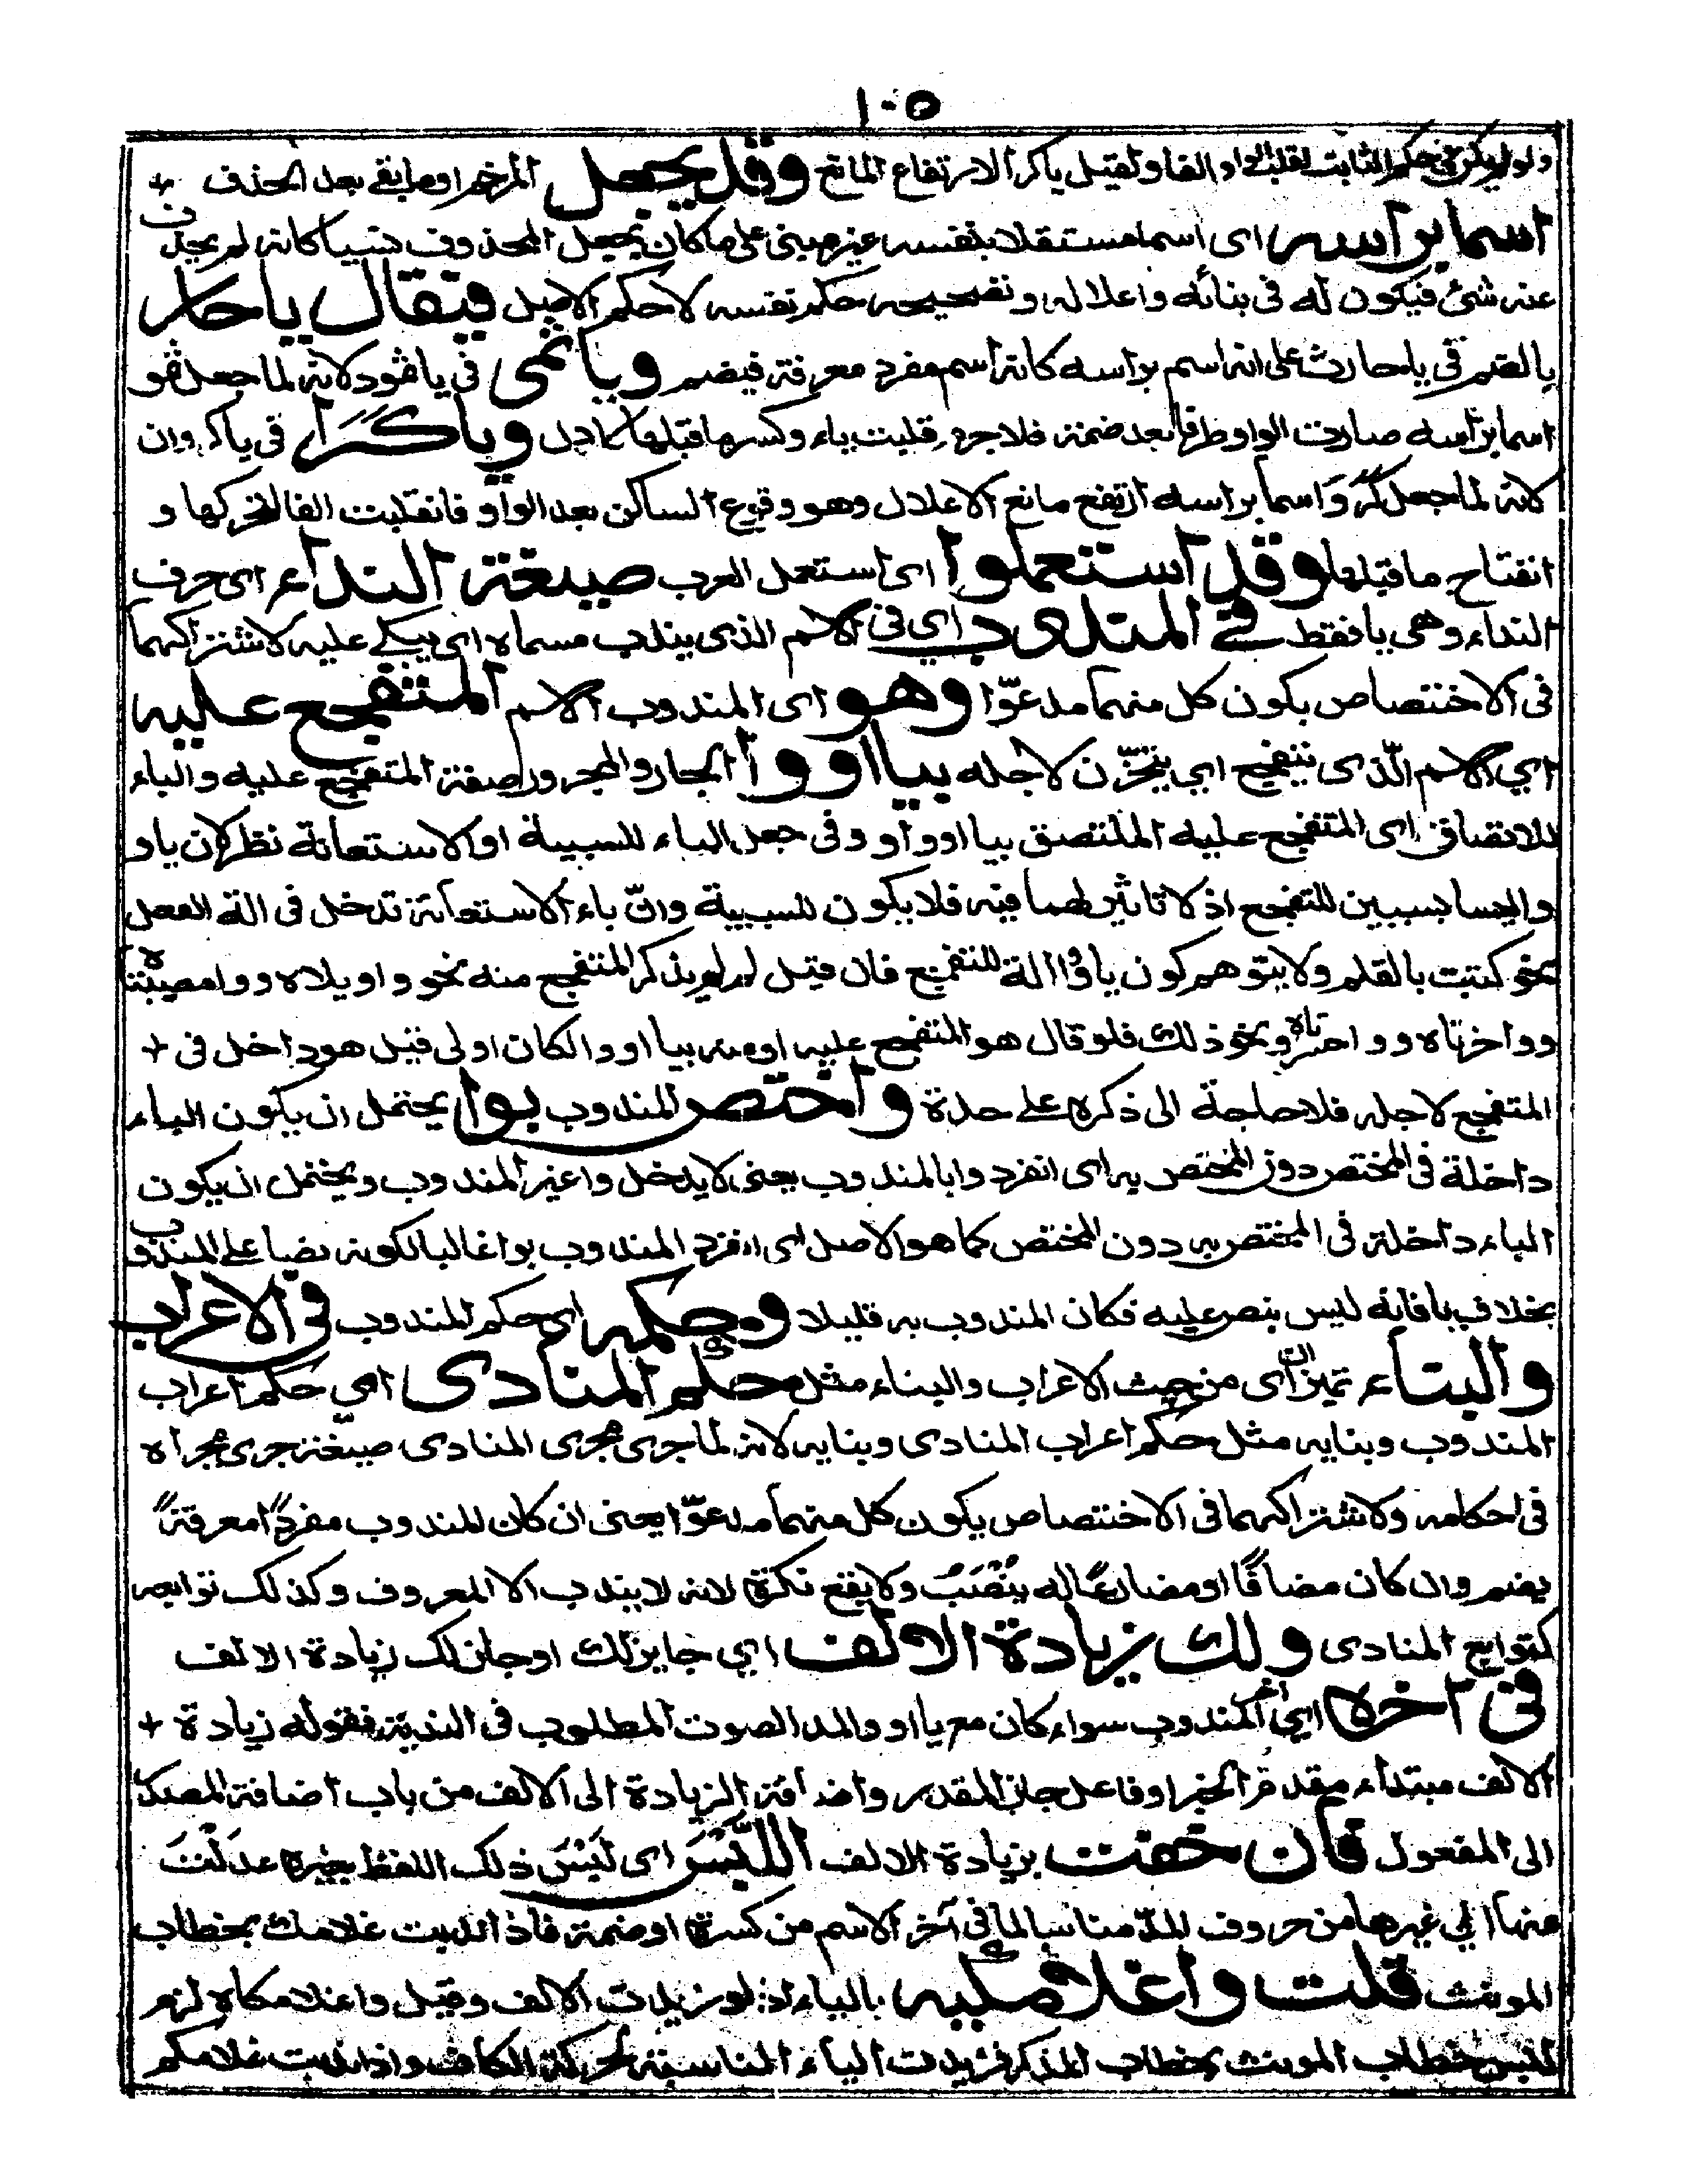 ١٠٥
ولو لم يكن في حكم الثابت لقلبت الواو الفا ولقيل ياكرا لارتفاع المانع وقد يجعل المرخم او ما بقي بعد الحذف
اسما براسه اى اسما مستقلا بنفسه غير مبنى على ما كان فيجعل المحذوف نسيا كانه لم يحذف
عنه شئ فيكون له فى بنائه واعلاله وتصحيحه حكم نفسه لا حكم الاصل فيقال يا حار
بالضم فى يا حارث على انه اسم براسه كانه اسم مفرد معرفة فيضم ويا ثمى فى يا ثمود لانه لما جعل ثمو
اسما براسه صارت الواو طرفا بعد ضمة فلا جرم قلبت ياء وكسر ما قبلها كادل ويا كرا فى يا كروان
لانه لما جعل كَرَوَ اسما براسه ارتفع مانع الاعلال وهو وقوع الساكن بعد الواو فانقلبت الفا لتحركها و
انفتاح ما قبلها وقد استعملوا اى استعمل العرب صيغة النداء اى حرف
النداء وهى يا فقط فى المندوب اى فى الاسم الذى يندب مسماه اى يبكى عليه لاشتراكهما
فى الاختصاص بكون كل منهما مدعوّا وهو اى المندوب الاسم المتفجع عليه
اي الاسم الّذى يتفجع اي يتحزّن لاجله بيا او وا الجار والمجرور صفة المتفجع عليه والباء
للالتصاق اى المتفجع عليه الملتصق بيا او وا و وفى جعل الباء للسببية او الاستعانة نظر لان يا و
وا ليسا بسببين للتفجع اذ لا تاثير لهما فيه فلا يكون للسببية وانّ باء الاستعانة تدخل فى الة الفعل
نحو كتبت بالقلم ولا يتوهم كون يا و وا الة للتفجع فان قيل لم لم يذكر المتفجع منه نحو واويلاه ووامصيبتاه
وواحزناه وواحسرتاه ونحو ذلك فلو قال هو المتفجع عليه او منه بيا او وا لكان اولى قيل هو داخل فى
المتفجع لاجله فلا حاجة الى ذكره على حدة واختص المندوب بوا يحتمل ان يكون الباء
داخلة فى المختص دون المختص به اى انفرد وا بالمندوب بمعنى لا يدخل وا غير المندوب ويحتمل ان يكون
الباء داخلة فى المختص به دون المختص كما هو الاصل اى انفرد المندوب بوا غالبا لكونه نصا على المندوب
بخلاف يا فانه ليس بنص عليه فكان المندوب به قليلا وحكمه اى حكم المندوب فى الاعراب
والبناء تميزان اى من حيث الاعراب والبناء مثل حكم المنادى اى حكم اعراب
المندوب وبنايه مثل حكم اعراب المنادى وبنايه لانه لما جرى مجرى المنادى صيغة جرى مجراه
فى احكامه ولاشتراكهما فى الاختصاص بكون كل منهما مدعوّا يعنى ان كان المندوب مفردًا معرفةً
يضم وان كان مضافًا او مضارعًا له يُنْصَبُ ولا يقع نكرة لانه لا يندب الا المعروف وكذلك توابعه
كتوابع المنادى ولك زيادة الالف اي جايز لك او جاز لك زيادة الالف
فى آخره اي آخر المندوب سواء كان مع يا او وا لمد الصوت المطلوب فى الندبة فقوله زيادة
الالف مبتداء مقدم الخبر او فاعل جاز المقدر واضافة الزيادة الى الالف من باب اضافة المصدر
الى المفعول فان خفت بزيادة الالف اللَّبْسَ اى لَبْسَ ذلك اللفظ بغيره عدلْتَ
منها الي غيرها من حروف المدّ مناسبا لما فى آخر الاسم من كسرة او ضمة فاذا ندبت غلامك بخطاب
المونث قلت واغلامكيه بالياء اذ لو زيدت الالف وقيل واغلامكاه لزم
للبس خطاب المونث بخطاب المذكر فزيدت الياء المناسبة لحركة الكاف واذا ندبت غلامكم